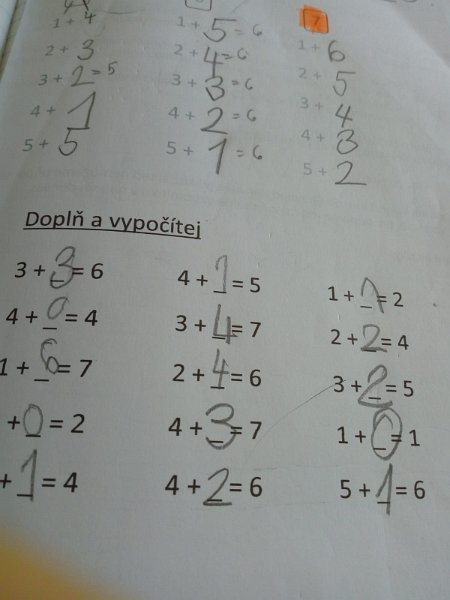 1 + 4
2 + 3
3 + 2 = 5
4 + 1
5 + 5
1 + 5 = 6
2 + 4 = 6
3 + 3 = 6
4 + 2 = 6
5 + 1 = 6
7
1 + 6
2 + 5
3 + 4
4 + 3
5 + 2
Doplň a vypočítej
3 + 3 = 6
4 + 0 = 4
1 + 6 = 7
+ 0 = 2
+ 1 = 4
4 + 1 = 5
3 + 4 = 7
2 + 4 = 6
4 + 3 = 7
4 + 2 = 6
1 + 1 = 2
2 + 2 = 4
3 + 2 = 5
1 + 0 = 1
5 + 1 = 6